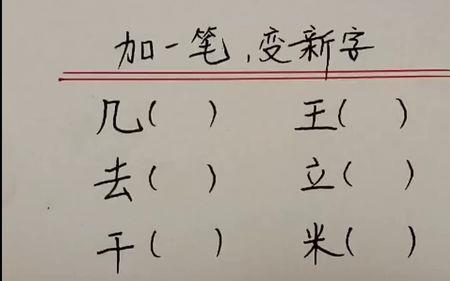 加一笔，变新字
几（ ） 王（ ）
去（ ） 立（ ）
干（ ） 米（ ）